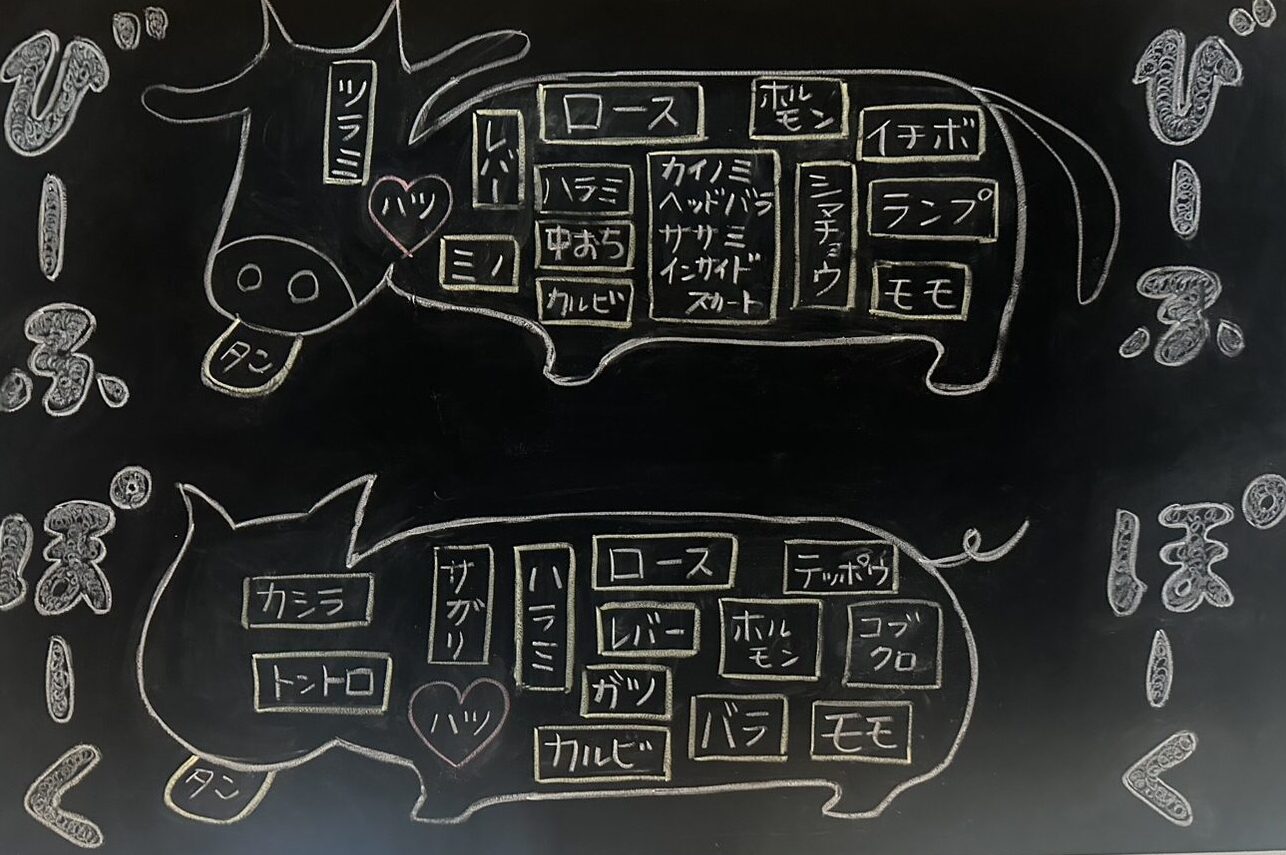 びーふ
ツラミ
タン
ハツ
レバー
ミノ
ロース
ハラミ
中おち
カルビ
カイノミ
ヘッドバラ
ササミ
インサイド
スカート
ホル
モン
シマチョウ
イチボ
ランプ
モモ
びーふ
ぽーく
カシラ
トントロ
タン
サガリ
ハツ
ハラミ
ロース
レバー
ガツ
カルビ
テッポウ
ホル
モン
コブ
クロ
バラ
モモ
ぽーく